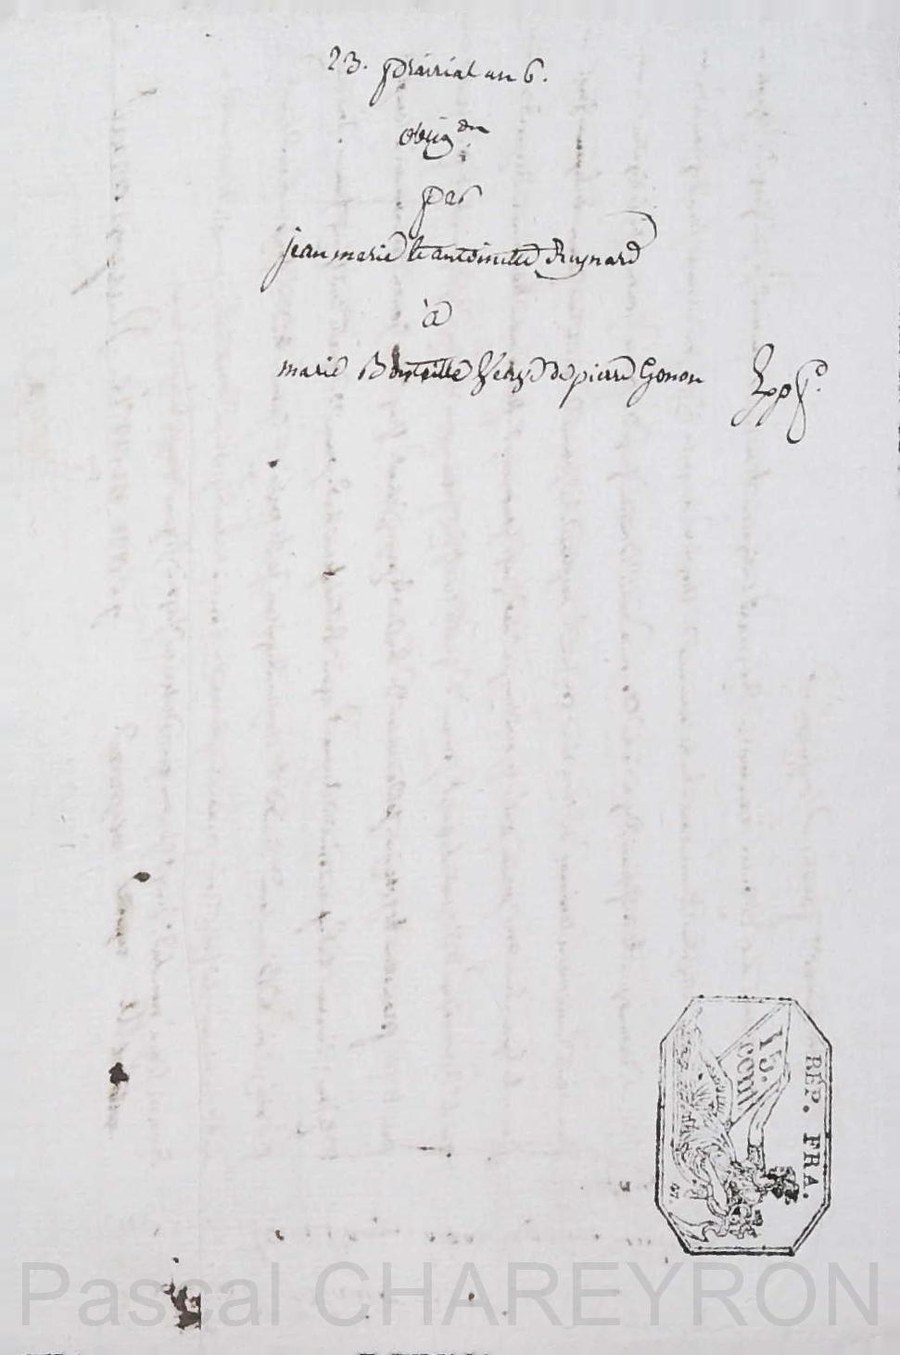 23. prairial an 6.
oblig.on
par
jean marie et antoinette Reynard
à
marie Bouteille de pierre Gonon
15.
cent
RÉP. FRA.
Pascal CHAREYRON